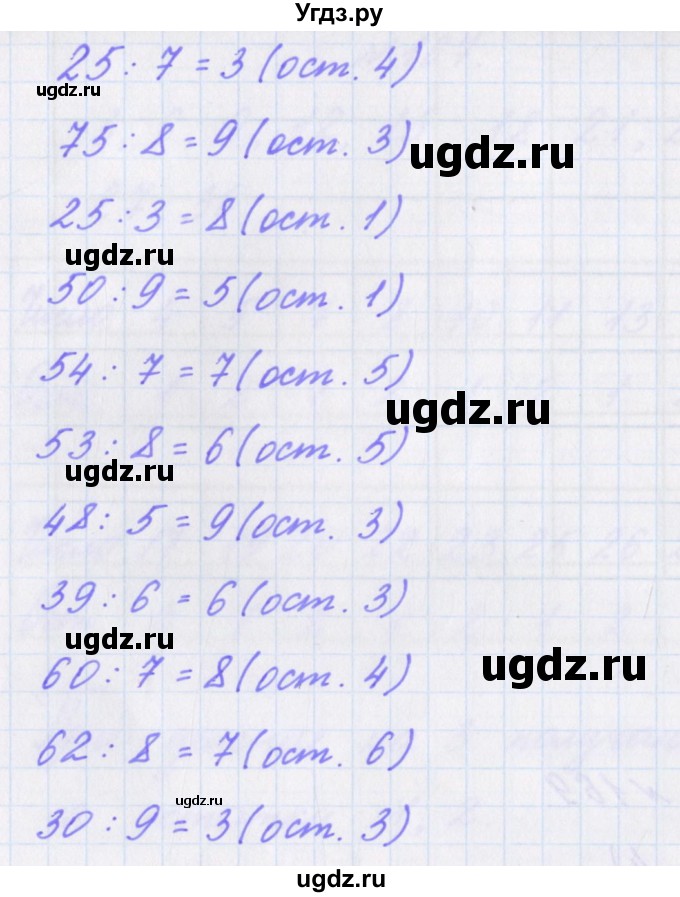 Угдз.ру
25 : 7 = 3 (ост. 4)
ugdz.ru
75 : 8 = 9 (ост. 3)
ugdz.ru
25 : 3 = 8 (ост. 1)
ugdz.ru
50 : 9 = 5 (ост. 1)
54 : 7 = 7 (ост. 5)
ugdz.ru
53 : 8 = 6 (ост. 5)
ugdz.ru
48 : 5 = 9 (ост. 3)
39 : 6 = 6 (ост. 3)
ugdz.ru
ugdz.ru
60 : 7 = 8 (ост. 4)
62 : 8 = 7 (ост. 6)
ugdz.ru
30 : 9 = 3 (ост. 3)
ugdz.ru